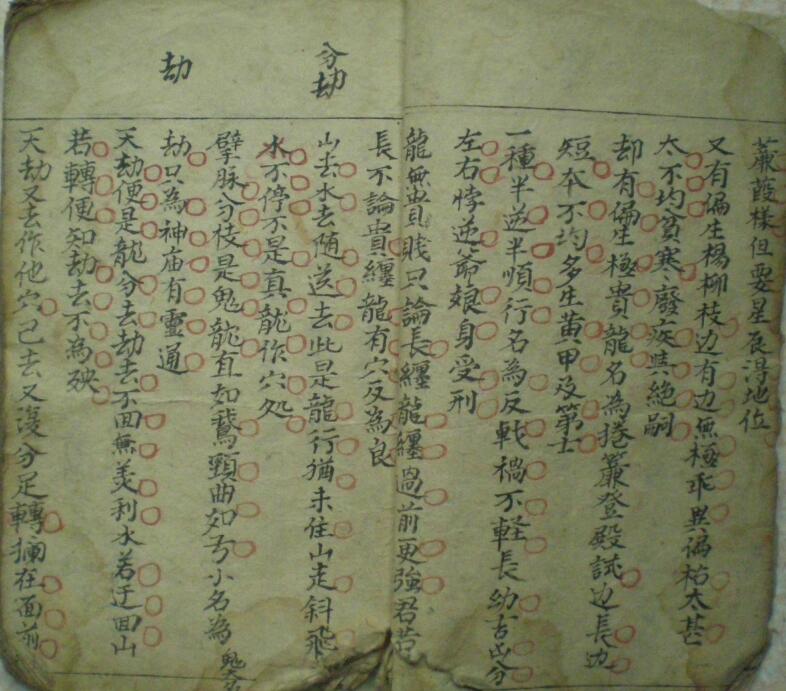 蒹葭樣但要星辰得地位
又有偏生楊柳枝边有边無極乖異偏枯太甚
太不均貧寒廢疾與絕嗣
却有偏生極貴龍名為捲簾登殿試边長边
短夲不均多生黄甲及第士
一種半逆半順行名為反戟禍不軽長幼吉凶分
左右悖逆爺娘身受刑
龍無貴賎只論長纏龍纏過前更強君若
長不論貴纏龍有穴反為良
分劫
山去水去随送去此是龍行猶未住山走斜飛
水不停不是真龍作穴処
擘脉分枝是鬼龍直如鵞頸曲如弓小名為鬼大名
劫
劫只為神庙有靈通
天劫便是龍分去劫去不回無美利水若迂回山
若轉便知劫去不為殃
天劫又去作他穴已去又復分足轉攔在面前